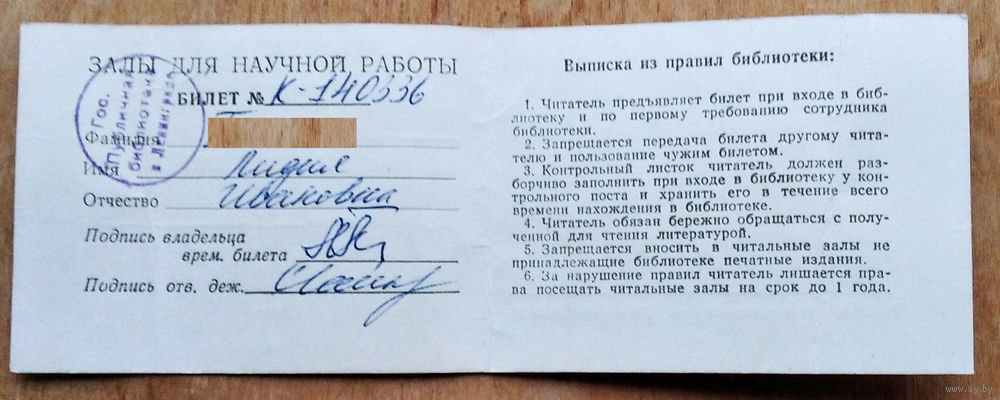 ЗАЛЫ ДЛЯ НАУЧНОЙ РАБОТЫ
БИЛЕТ № К-140336
Фамилия
Имя Лидия
Отчество Ивановна
Подпись владельца
врем. билета
Подпись отв. деж.
Гос.
Публичная
библиотека
в Ленинграде
Выписка из правил библиотеки:
1. Читатель предъявляет билет при входе в биб-
лиотеку и по первому требованию сотрудника
библиотеки.
2. Запрещается передача билета другому чита-
телю и пользование чужим билетом.
3. Контрольный листок читатель должен раз-
борчиво заполнить при входе в библиотеку у кон-
трольного поста и хранить его в течение всего
времени нахождения в библиотеке.
4. Читатель обязан бережно обращаться с полу-
ченной для чтения литературой.
5. Запрещается вносить в читальные залы не
принадлежащие библиотеке печатные издания.
6. За нарушение правил читатель лишается пра-
ва посещать читальные залы на срок до 1 года.
www.ay.by